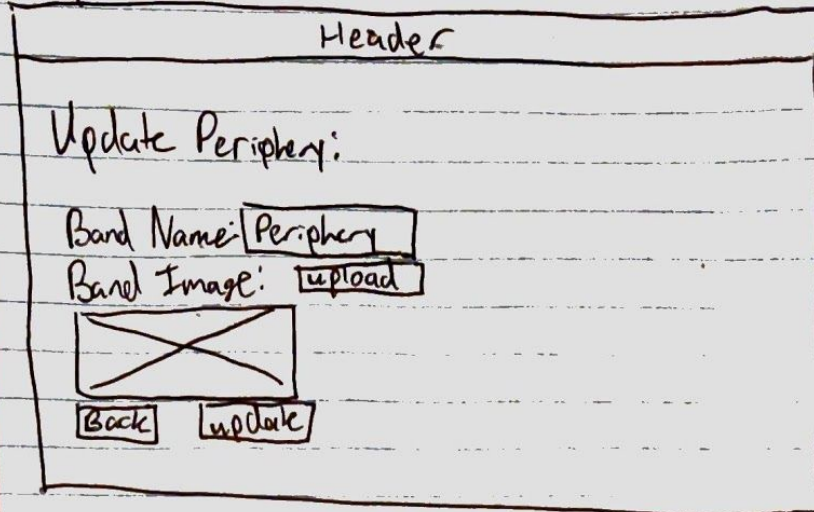 Header
Update Periphery:
Band Name: Periphery
Band Image: upload
Back update